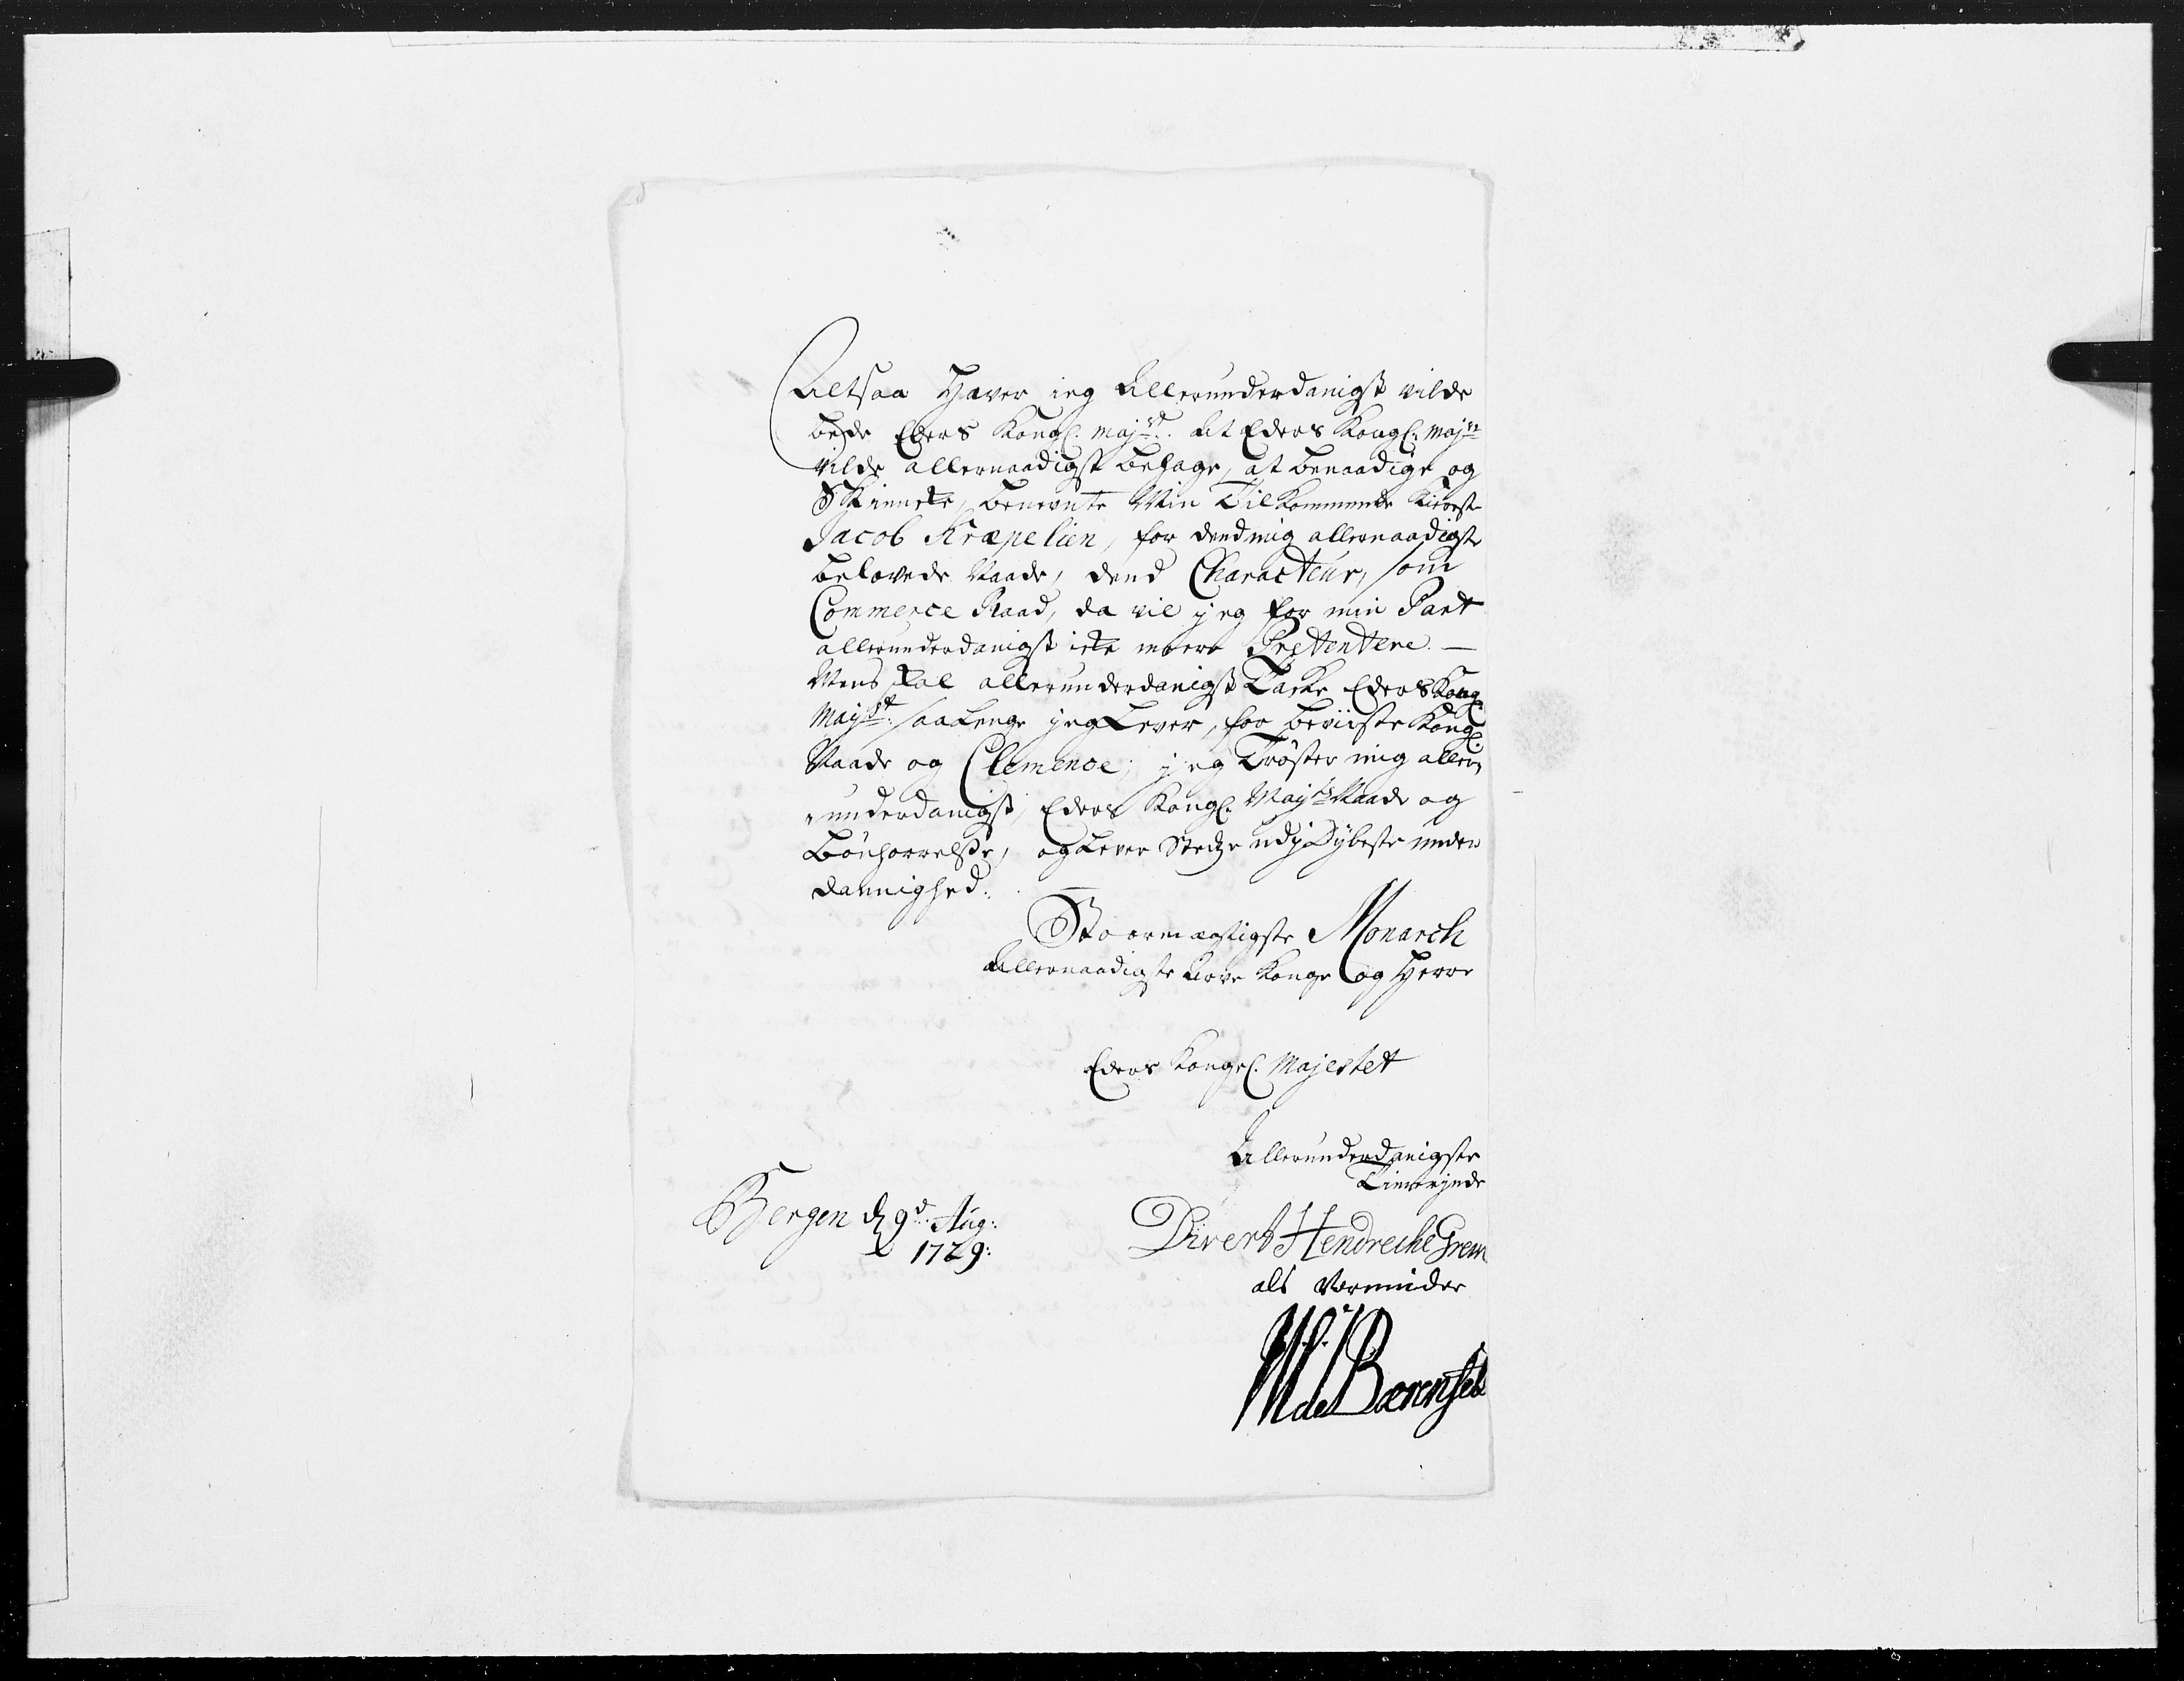 Altsaa Haver ieg Allerunderdanigst vilde
beede Eders Kongl. Majst. At Eders Kongl. Majst
vilde allernaadigst behage, at benaadige og
Skienche, benevnte Min Tilkommende Kiereste
Jacob Kræpelien, for dend mig allernaadigste
belovede Naade, dend Characteur, som
Commerce Raad, da vil jeg for min Part
allerunderdanigst icke meere Prætentere. —
Mens skal allerunderdanigst Tacke Eders Kongl
Mayst: saa Lenge jeg Lever, for beviiste Kongl.
Naade og Clemence; jeg Trøster mig aller,,
,,underdanigst, Eders Kongl. Mayts Naade og
Bönhørrelsse, og Lever Stedse udj Dybeste under
dannighed.
Stoormægtigste Monarch
Allernaadigste Arve Konge og Herre
Eders Kongel. Majestet
Allerunderdanigste
Tienerinde
Bergen d 9d. Aug:
1729:
Divert Hendreche Grew
als Vormünder
Bærensen